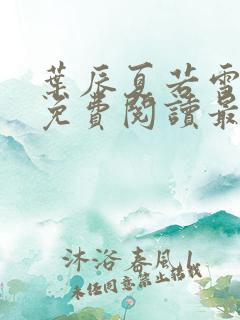 葉辰夏若雪
免費閱讀最
沐浴春風|
未经同意禁止转载